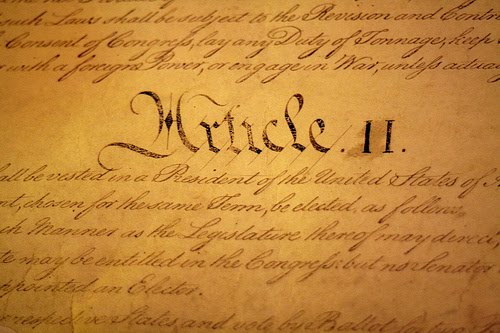 such Laws shall be subject to the Revision and Contr
Consent of Congress, lay any Duty of Tonnage, keep
with a foreign Power, or engage in War, unless actua
Article. II.
all be vested in a President of the United States of
, chosen for the same Term, be elected, as follows
ch Manner as the Legislature thereof may direct
te may be entitled in the Congress: but no Senator
ppointed an Elector.
respective States, and vote by Ballot